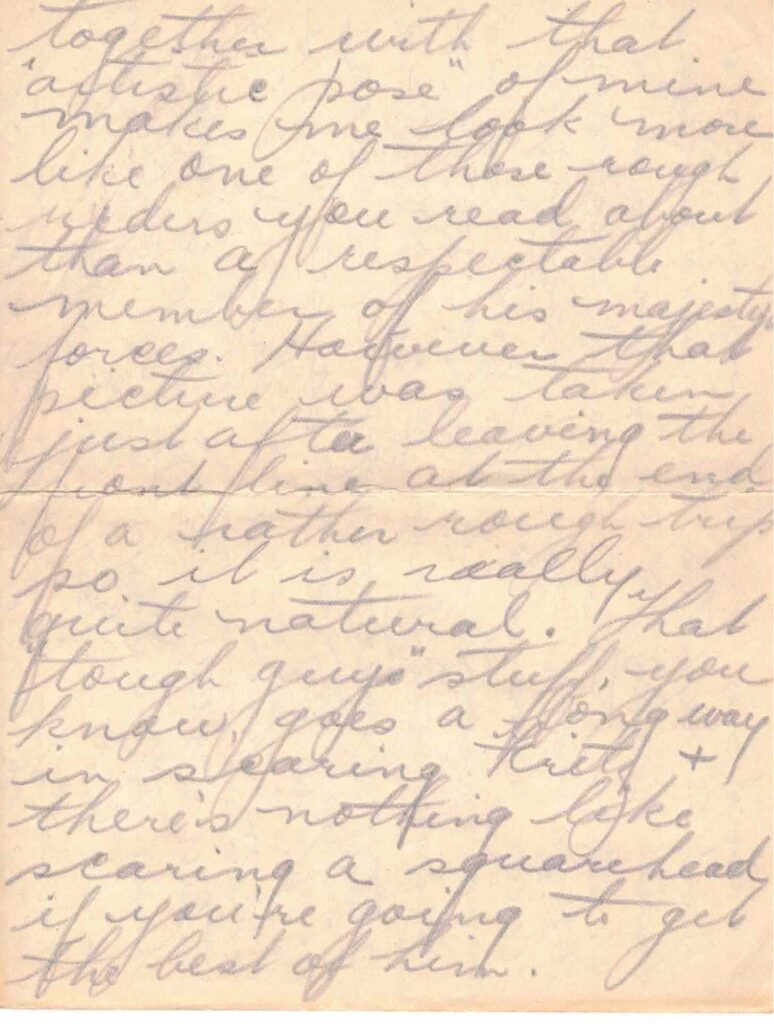 together with that
"artistic pose" of mine
makes me look more
like one of those rough
riders you read about
than a respectable
member of his majesty's
forces. However that
picture was taken
just after leaving the
front line at the end
of a rather rough trip
so it is really
quite natural. That
"tough guys" stuff, you
know, goes a long way
in scaring Fritz +
there's nothing like
scaring a squarehead
if you're going to get
the best of him.